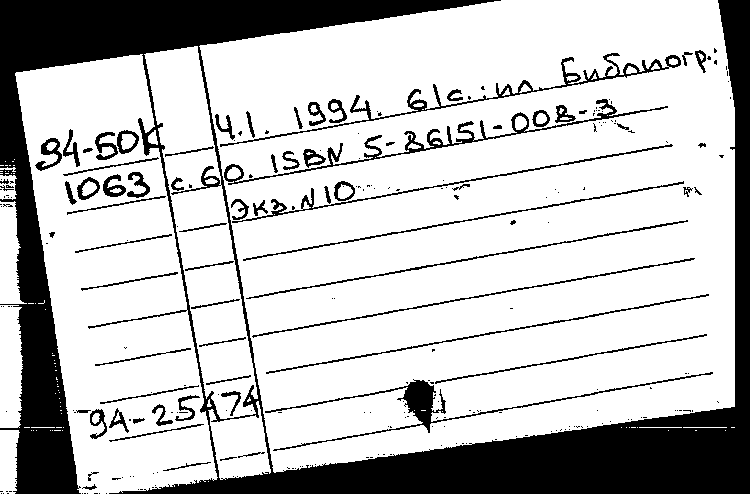 94-50К Ч.1. 1994. 61с.: ил. Библиогр.:
1063 с.60. ISBN 5-86151-008-3
Экз.N10
94-25474